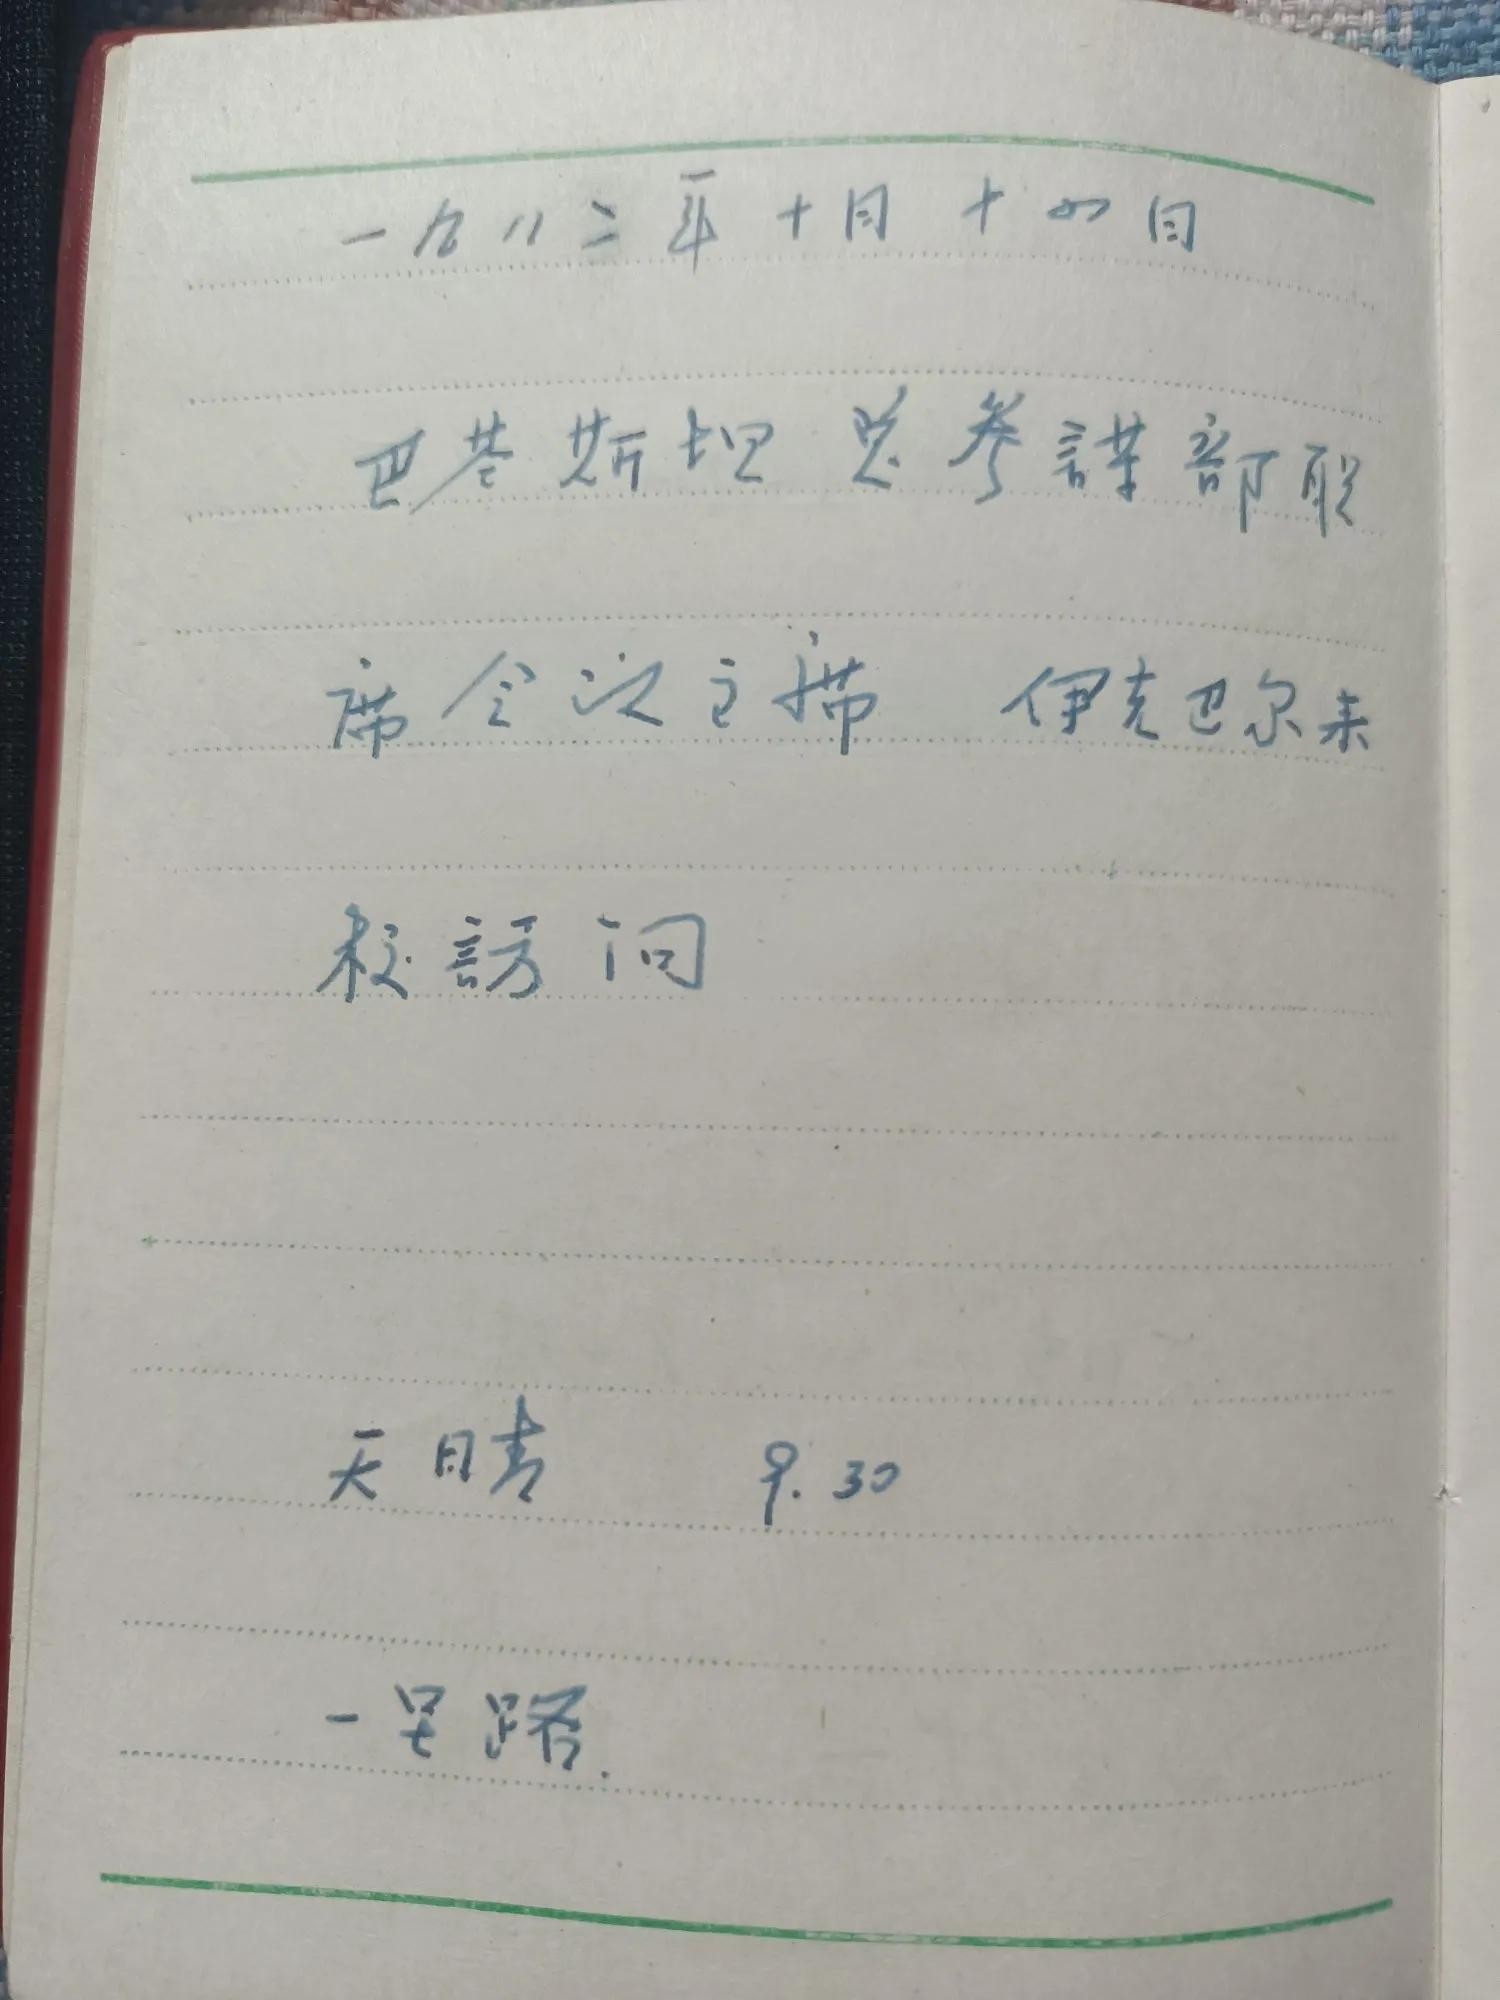 一九八二年十月十四日
巴基斯坦总参謀部联
席会议主席 伊克巴尔来
校訪问
天晴 9.30
一号路.